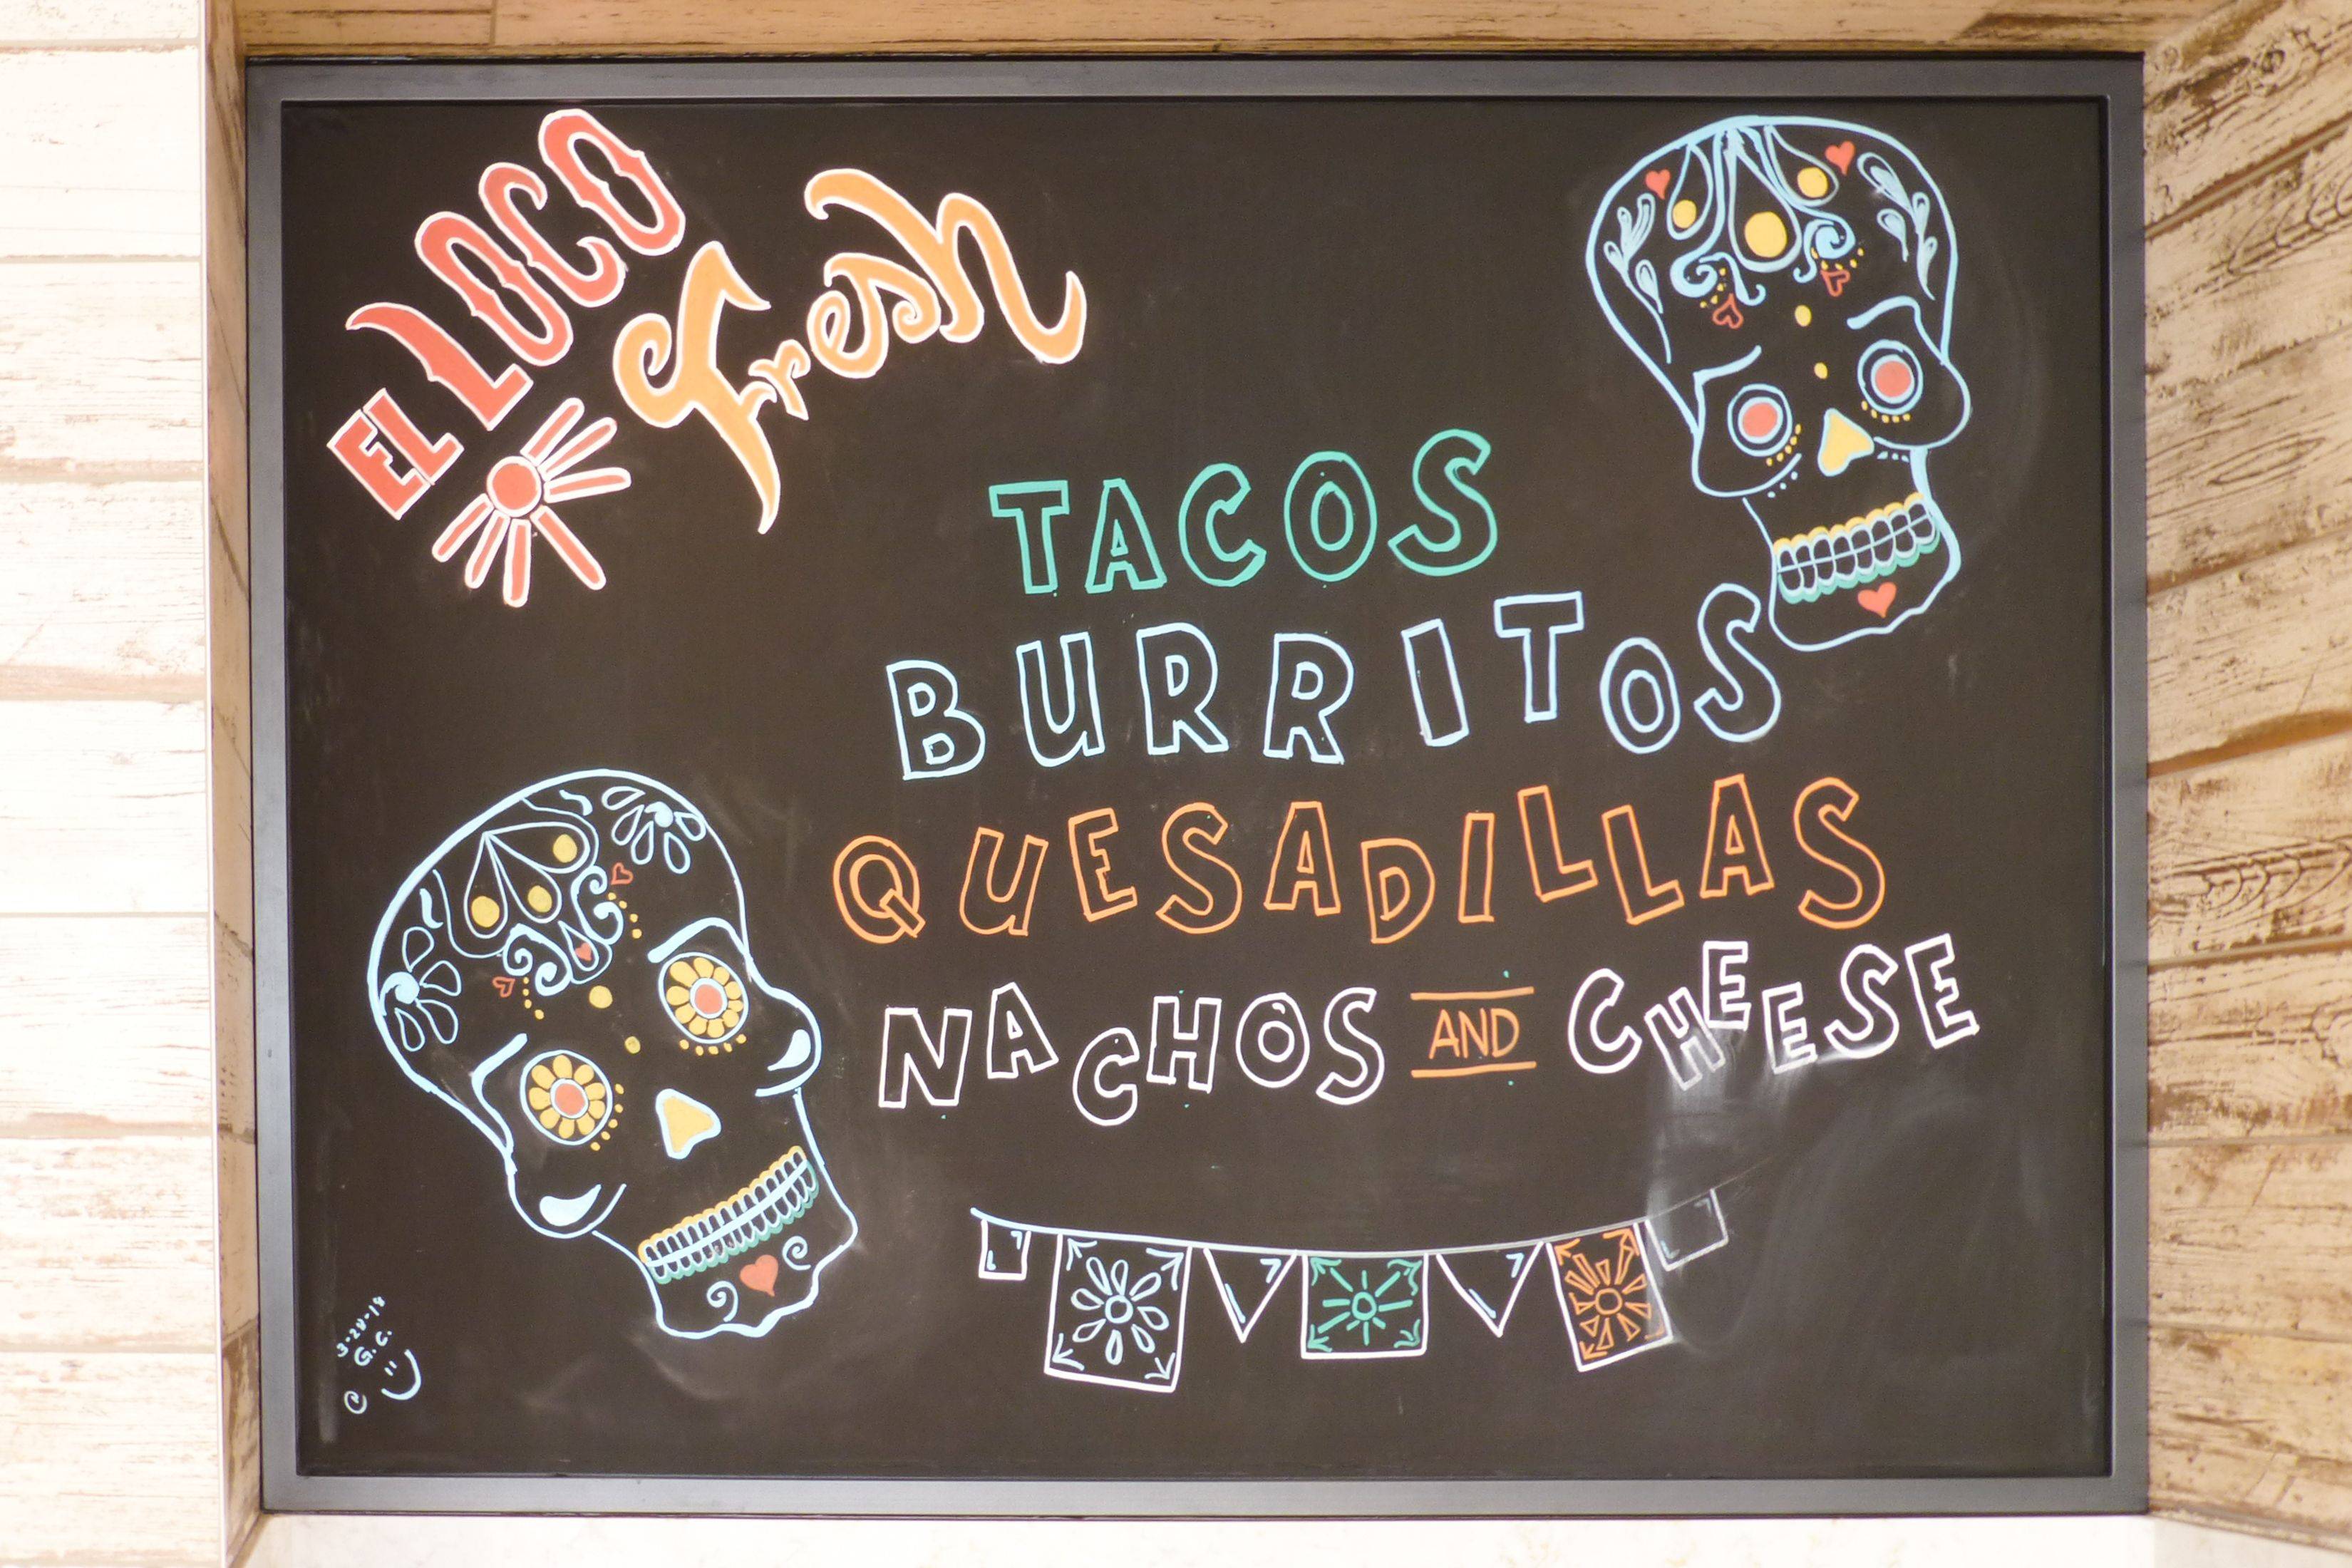 EL LOCO
Fresh
TACOS
BURRITOS
QUESADILLAS
NACHOS AND CHEESE
3-28-18
G.C.